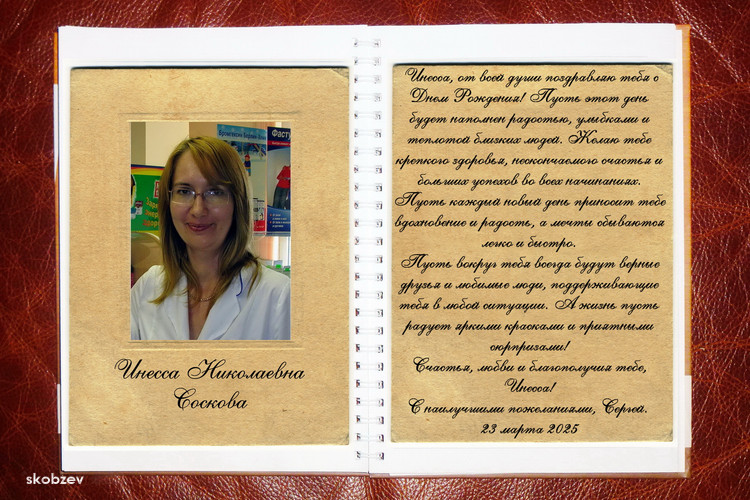 Фасту
Инесса Николаевна
Соскова
Инесса, от всей души поздравляю тебя с
Днем Рождения! Пусть этот день
будет наполнен радостью, улыбками и
теплотой близких людей. Желаю тебе
крепкого здоровья, нескончаемого счастья и
больших успехов во всех начинаниях.
Пусть каждый новый день приносит тебе
вдохновение и радость, а мечты сбываются
легко и быстро.
Пусть вокруг тебя всегда будут верные
друзья и любимые люди, поддерживающие
тебя в любой ситуации. А жизнь пусть
радует яркими красками и приятными
сюрпризами!
Счастья, любви и благополучия тебе,
Инесса!
С наилучшими пожеланиями, Сергей.
23 марта 2025
skobzev